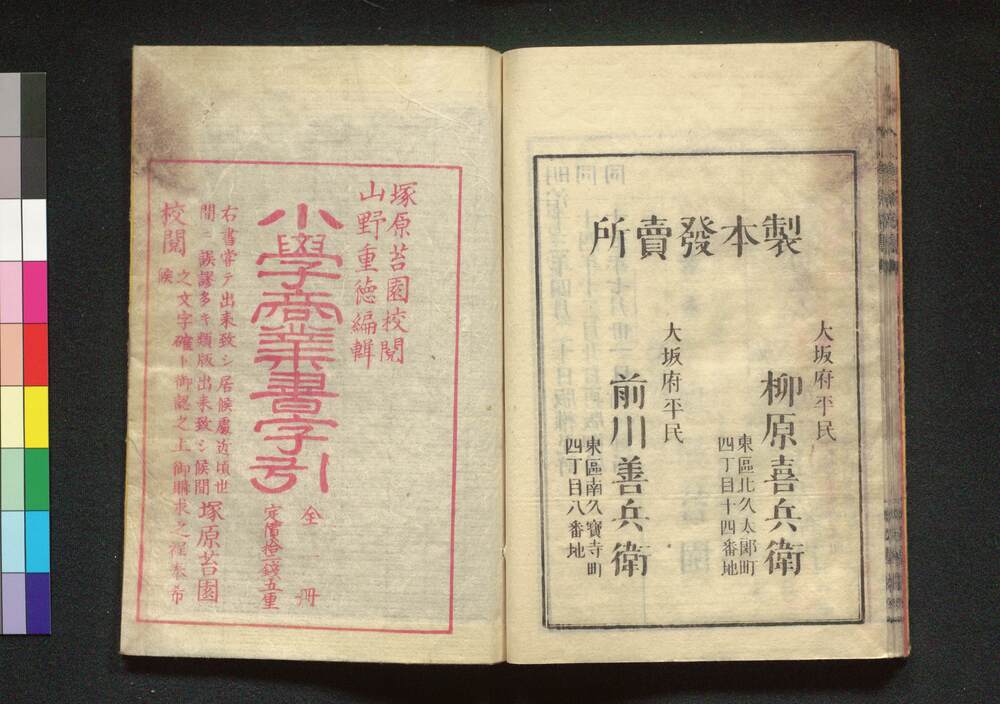 製本發賣所
大坂府平民
柳原喜兵衛
東區北久太郎町
四丁目十四番地
大坂府平民
前川善兵衛
東區南久寳寺町
四丁目八番地
塚原苔園校閲
山野重徳編輯
小學商業書字引
全一冊
定價拾錢五厘
右書嘗テ出来致シ居候處近頃世
間ニ誤謬多キ類版出来致シ候間塚原苔園
校閲之文字確ト御認之上御購求之程奉希
候